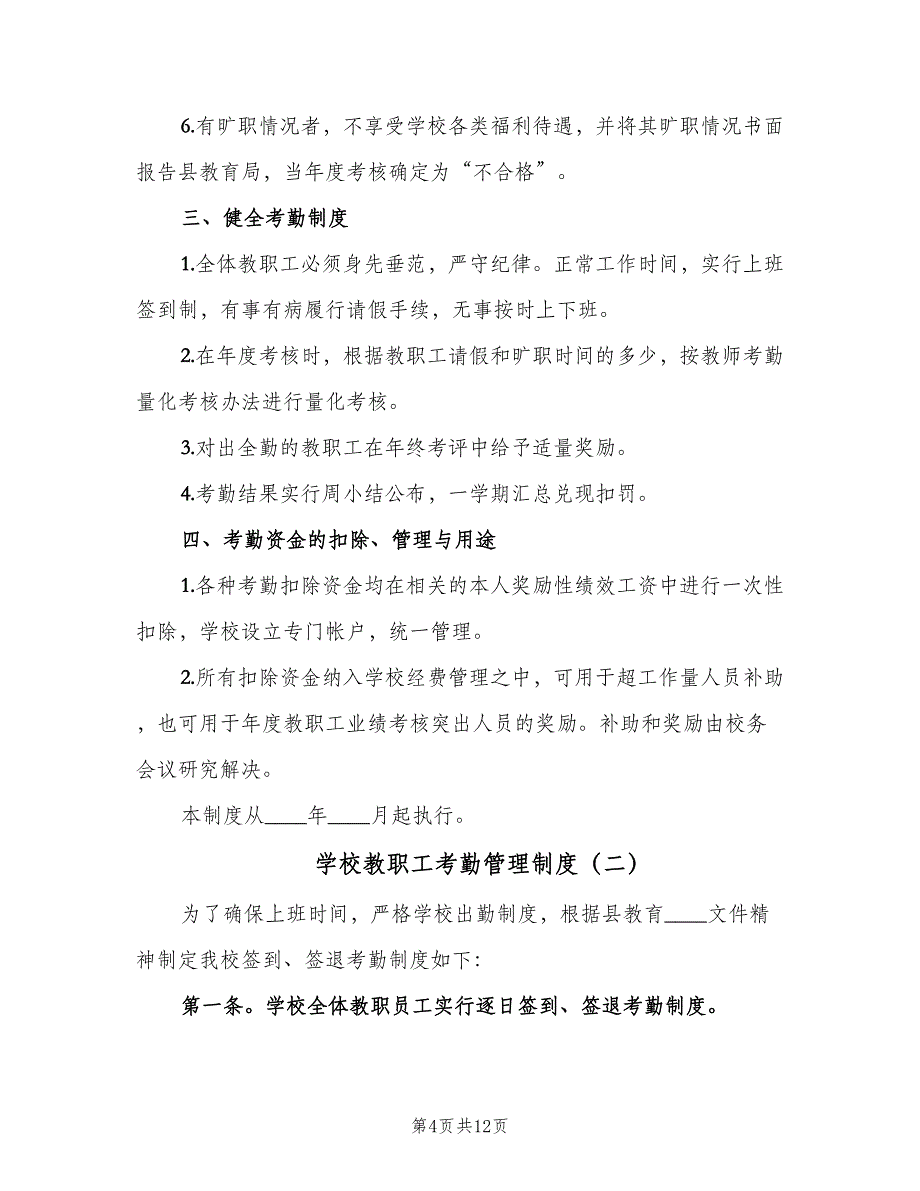 6.有旷职情况者，不享受学校各类福利待遇，并将其旷职情况书面
报告县教育局，当年度考核确定为“不合格”。
三、健全考勤制度
1.全体教职工必须身先垂范，严守纪律。正常工作时间，实行上班
签到制，有事有病履行请假手续，无事按时上下班。
2.在年度考核时，根据教职工请假和旷职时间的多少，按教师考勤
量化考核办法进行量化考核。
3.对出全勤的教职工在年终考评中给予适量奖励。
4.考勤结果实行周小结公布，一学期汇总兑现扣罚。
四、考勤资金的扣除、管理与用途
1.各种考勤扣除资金均在相关的本人奖励性绩效工资中进行一次性
扣除，学校设立专门帐户，统一管理。
2.所有扣除资金纳入学校经费管理之中，可用于超工作量人员补助
，也可用于年度教职工业绩考核突出人员的奖励。补助和奖励由校务
会议研究解决。
本制度从____年____月起执行。
学校教职工考勤管理制度（二）
为了确保上班时间，严格学校出勤制度，根据县教育____文件精
神制定我校签到、签退考勤制度如下：
第一条。学校全体教职员工实行逐日签到、签退考勤制度。
第4页共12页